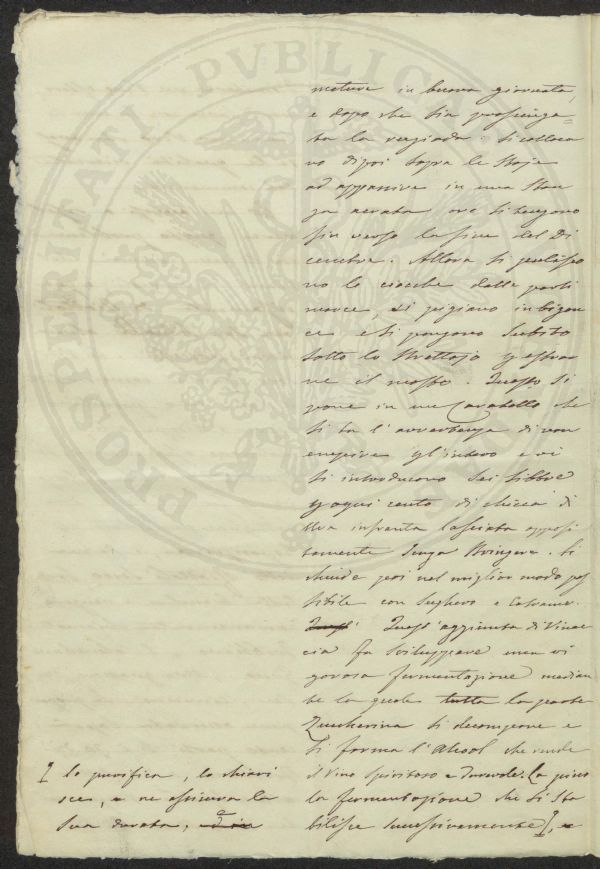 mature in buona giornata,
e dopo che sia prosciuga=
ta la rugiada: si colloca
no dipoi sopra le Stoje
ad appassire in una Stan
za aerata ove si tengono
fin verso la fine del Di
cembre. Allora si puliscono
no le ciocche dalle parti
marce, si pigiano in bigon
ce e si pongono Subito
sotto lo Strettojo p estrar
ne il mosto. Questo si
pone in un Caratello che
si ha l'avvertenza di non
empire p l'intero e vi
si introducono Sei libbre
p ogni cento di chicchi di
Uva infranta lasciata apposi
tamente Senza Stringere. Si
chiude poi nel miglior modo pos
sibile con Sughero e Catrame.
Quest' Quest'aggiunta di Vinac
cia fa Sviluppare una vi
gorosa fermentazione median
te la quale tutta la parte
Zuccherina si decompone e
si forma l'Alcool che rende
il Vino Spiritoso e durevole. La picco
la fermentazione che si Sta
bilisce Successivamente [, e
[ lo purifica, lo chiari
sce, e ne assicura la
Sua durata,
PROSPERITATI PVBLICAE